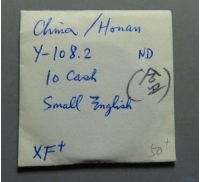 China / Honan
Y-108.2 ND
10 Cash
Small English
XF+ 50+